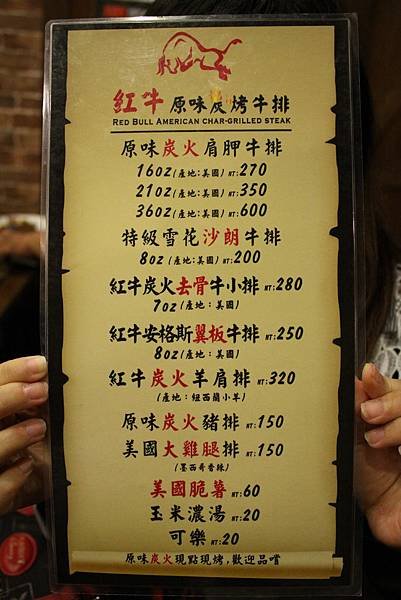 紅牛 原味炭烤牛排
RED BULL AMERICAN CHAR-GRILLED STEAK
原味炭火肩胛牛排
16oz(產地:美國)NT:270
21oz(產地:美國)NT:350
36oz(產地:美國)NT:600
特級雪花沙朗牛排
8oz(產地:美國)NT:200
紅牛炭火去骨牛小排 NT:280
7oz(產地:美國)
紅牛安格斯翼板牛排 NT:250
8oz(產地:美國)
紅牛炭火羊肩排 NT:320
(產地:紐西蘭小羊)
原味炭火豬排 NT:150
美國大雞腿排 NT:150
(墨西哥香辣)
美國脆薯 NT:60
玉米濃湯 NT:20
可樂 NT:20
原味炭火現點現烤,歡迎品嚐